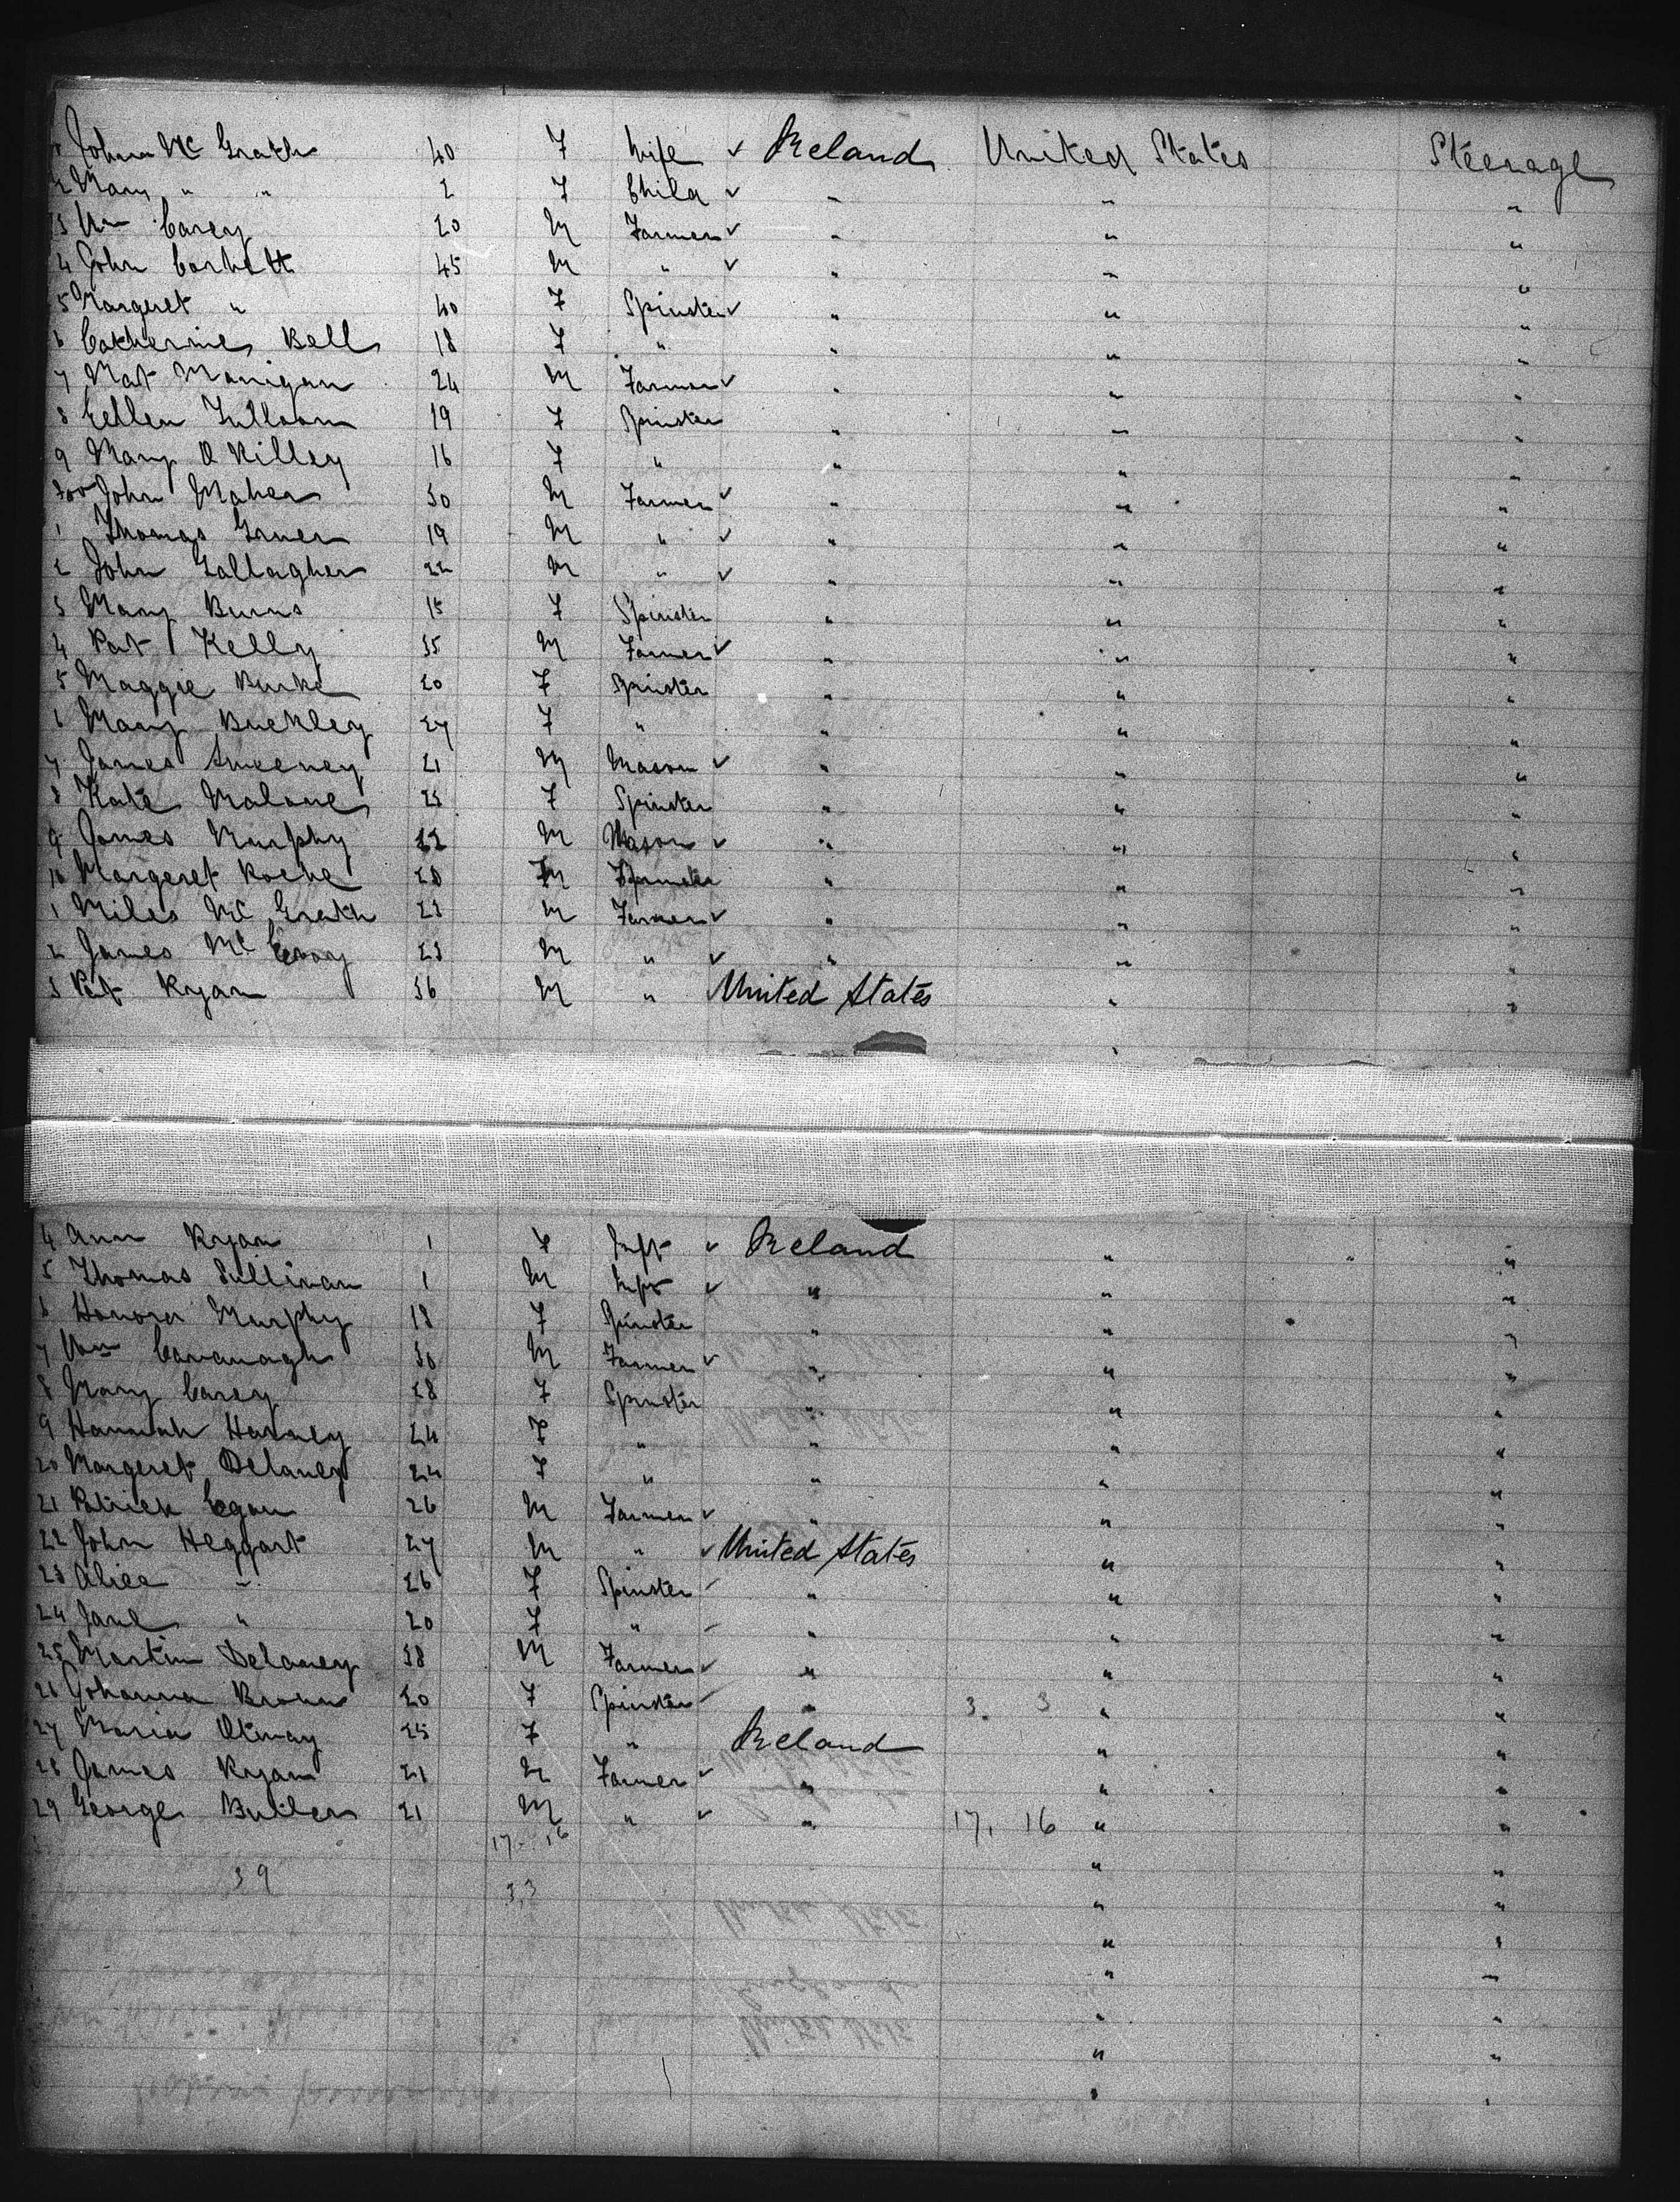 Johana Mc Grath 40 F Wife ✓ Ireland United States Steerage
2 Mary " " 2 F Child ✓ " " "
3 Wm Carey 20 M Farmer ✓ " " "
4 John Corbett 45 M " ✓ " " "
5 Margeret " 40 F Spinster ✓ " " "
6 Catherine Bell 18 F " " " "
7 Mat Manigan 24 M Farmer ✓ " " "
8 Eellen 19 F Spinster " " "
9 Mary O Killey 16 F " " " "
300 John Maher 30 M Farmer ✓ " " "
1 Thomas 19 M " ✓ " " "
2 John Gallagher 22 M " ✓ " " "
3 Mary Burns 15 F Spinster " " "
4 Pat Kelly 35 M Farmer ✓ " " "
5 Maggie Burke 20 F Spinster " " "
6 Mary Buckley 27 F " " " "
7 James Sweeney 21 M Mason ✓ " " "
8 Kate Malone 23 F Spinster " " "
9 James Murphy 22 M Mason ✓ " " "
10 Margeret Roche 28 F Spinster " " "
1 Miles Mc Grath 23 M Farmer ✓ " " "
2 James Mc Evoy 23 M " ✓ " " "
3 Pat Ryan 36 M " United States " "
4 Ann Ryan 1 F Inft ✓ Ireland " " "
5 Thomas Sullivan 1 M Inft ✓ " " "
6 Honora Murphy 18 F Spinster " " "
7 Wm Cavanagh 30 M Farmer ✓ " " "
8 Mary Carey 28 F Spinster " " "
9 Hannah Harney 24 F " " " "
20 Margeret Delaney 24 F " " " "
21 Patrick Egan 26 M Farmer ✓ " " "
22 John Heggart 27 M " ✓ United States " "
23 Alice " 26 F Spinster ✓ " " "
24 Jane " 20 F " ✓ " " "
25 Martin Delaney 38 M Farmer ✓ " " "
26 Johanna Brown 20 F Spinster ✓ " 3. 3 " "
27 Maria Otway 25 F " Ireland " "
28 James Ryan 21 M Farmer ✓ " " "
29 George Butler 21 M " ✓ " 17, 16 " "
17- 16 " "
39 3,3 " "
" "
" "
" "
" "
" "